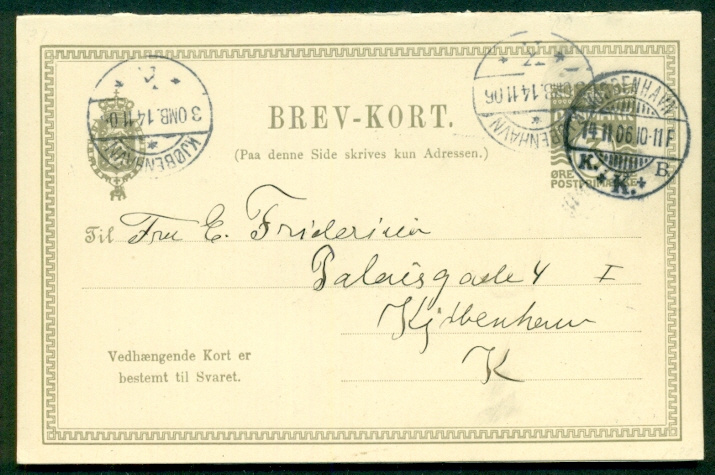 BREV-KORT.
(Paa denne Side skrives kun Adressen.)
3 OMB. 14.11.0
KJØBENHAVN
OMB. 14.11.06
KJØBENHAVN
14.11.06.10-11 F
K. K. B.
ØRE
POSTFRIMÆRKE
Til Fru E. Fridericia
Palaisgade 4 I
Kjøbenhavn
K
Vedhængende Kort er
bestemt til Svaret.